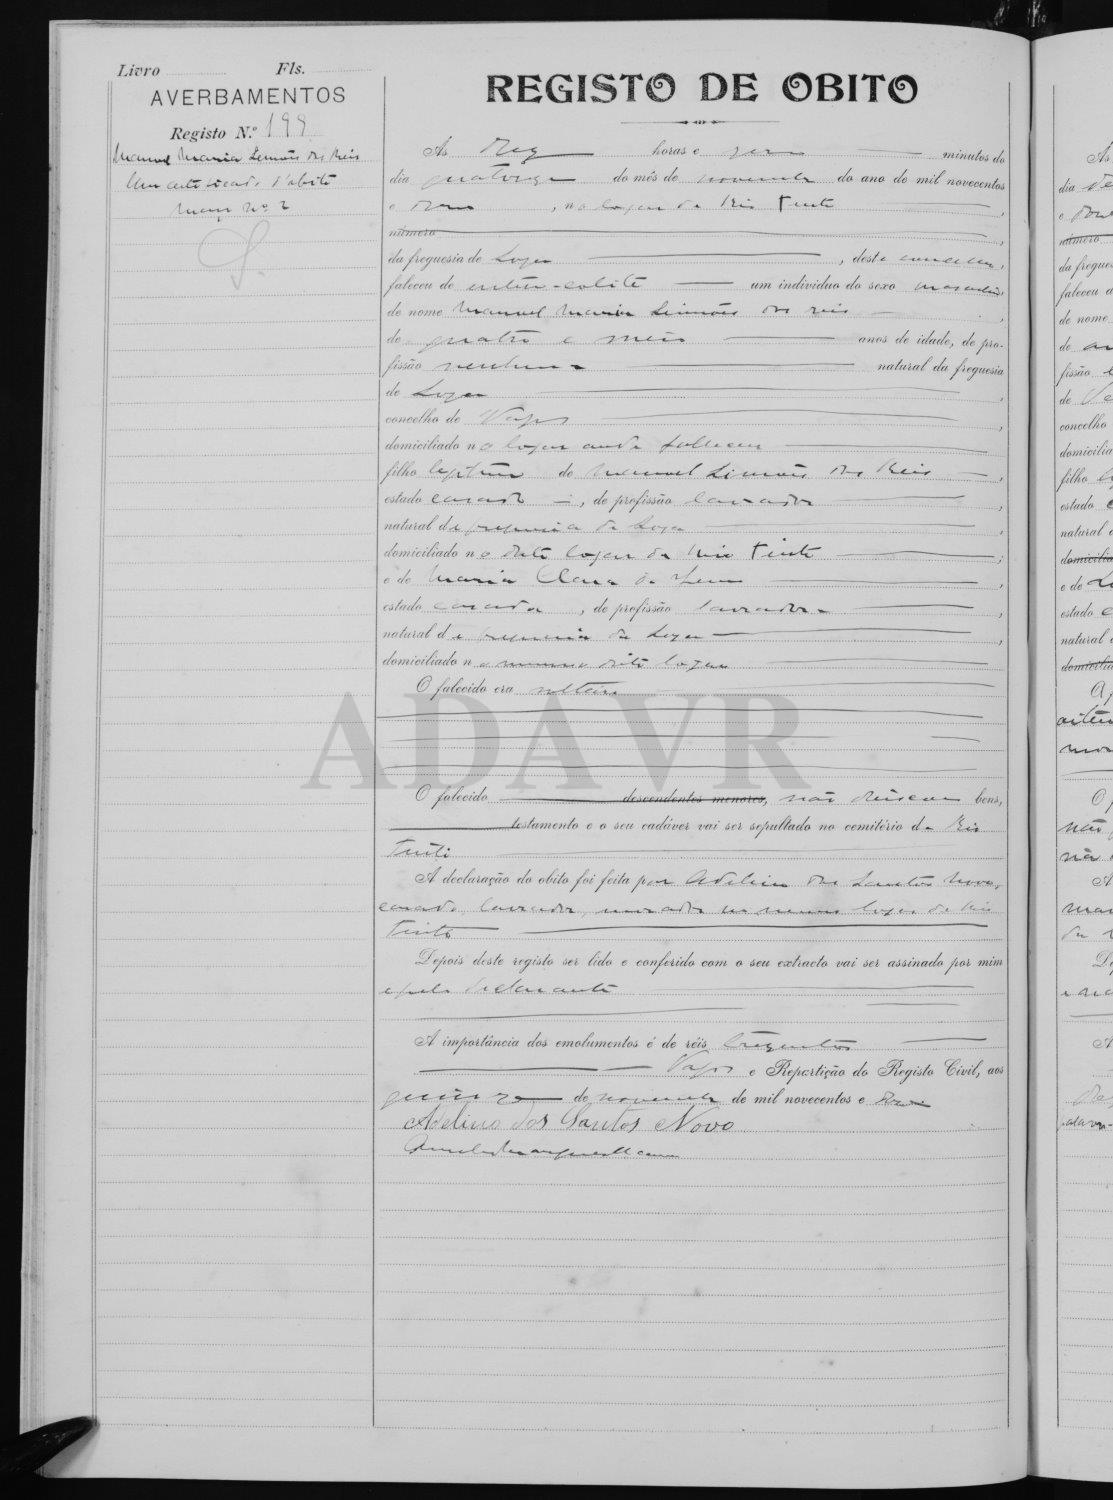 Livro Fls.
AVERBAMENTOS
Registo N.º 199
Manuel Maria Simões dos Reis
Um certificado d'obito
Maço nº 2
REGISTO DE OBITO
Às dez horas e zero minutos do
dia quatorze do mês de novembro do ano de mil novecentos
e doze, no logar de Rio Tinto,
número,
da freguesia de Soza, deste concelho,
faleceu de entero-colite um individuo do sexo masculino,
de nome Manuel Maria Simões dos Reis,
de quatro e meio anos de idade, de pro-
fissão nenhuma natural da freguesia
de Soza,
concelho de Vagos,
domiciliado no logar onde falleceu
filho legitimo de Manuel Simões dos Reis,
estado casado, de profissão lavrador,
natural da freguesia de Soza,
domiciliado no dito logar de Rio Tinto;
e de Maria Clara de,
estado casada, de profissão lavradora
natural da freguesia de Soza,
domiciliado no mesmo dito logar
O falecido era solteiro
ADAVR
O falecido descendentes menores, não deixou bens,
testamento e o seu cadáver vai ser sepultado no cemitério de Rio
Tinto
A declaração do obito foi feita por Adelino dos Santos Novo,
casado, lavrador, morador no mesmo logar de Rio
Tinto
Depois deste registo ser lido e conferido com o seu extracto vai ser assinado por mim
e pelo declarante
A importância dos emolumentos é de réis trezentos
Vagos e Repartição do Registo Civil, aos
quinze de novembro de mil novecentos e doze
Adelino dos Santos Novo